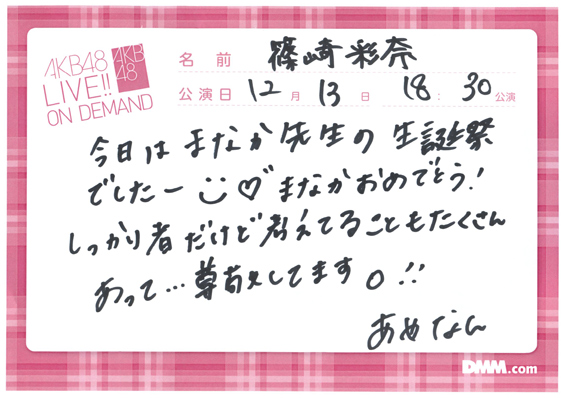 AKB48
LIVE!!
ON DEMAND
AKB
48
名前 篠崎彩奈
公演日 12月 13日 18:30公演
今日は まなか先生の 生誕祭
でしたー まなかおめでとう!
しっかり者だけど考えてることもたくさん
あって…尊敬してます。!!
あやなん
DMM.com